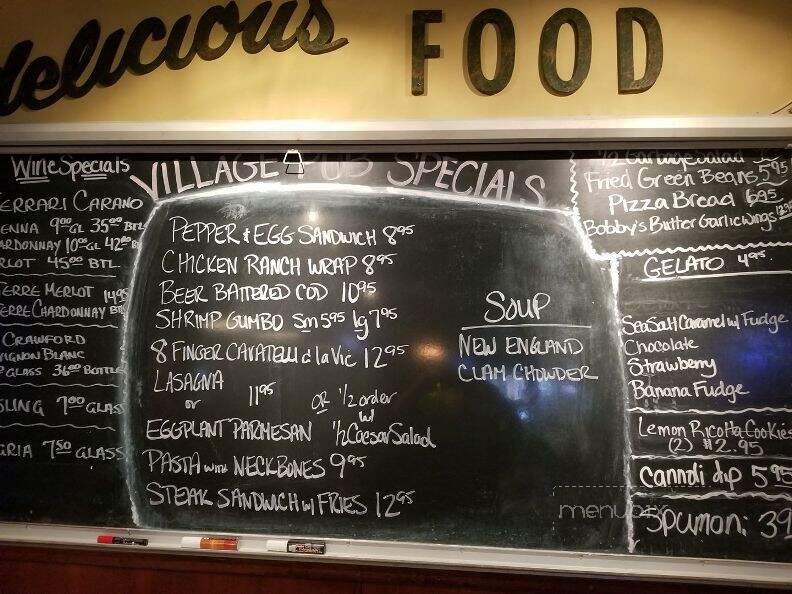 delicious FOOD
Wine Specials
FERRARI CARANO
9⁰⁰ GL 35⁰⁰ BTL
CHARDONNAY 10⁰⁰ GL 42⁰⁰ B
MERLOT 45⁰⁰ BTL
TERRE MERLOT 14⁹⁵
TERRE CHARDONNAY BTL
CRAWFORD
VIGNON BLANC
GLASS 36⁰⁰ BOTTLE
SLING 7⁰⁰ GLASS
GRIA 7⁵⁰ GLASS
VILLAGE PUB SPECIALS
PEPPER & EGG SANDWICH 8⁹⁵
CHICKEN RANCH WRAP 8⁹⁵
BEER BATTERED COD 10⁹⁵
SHRIMP GUMBO sm 5⁹⁵ lg 7⁹⁵
8 FINGER CAVATELLI a la Vic 12⁹⁵
LASAGNA
or 11⁹⁵ OR 1/2 order
w/
EGGPLANT PARMESAN 1/2 Caesar Salad
PASTA with NECKBONES 9⁹⁵
STEAK SANDWICH w/ FRIES 12⁹⁵
SOUP
NEW ENGLAND
CLAM CHOWDER
1/2 Garbage Salad
Fried Green Beans 5⁹⁵
Pizza Bread 6⁹⁵
Bobby's Butter Garlic Wings
GELATO 4⁹⁵
Sea Salt Caramel w/ Fudge
Chocolate
Strawberry
Banana Fudge
Lemon Ricotta Cookies
(2) $2.95
Cannoli dip 5⁹⁵
Spumoni 39
menupix